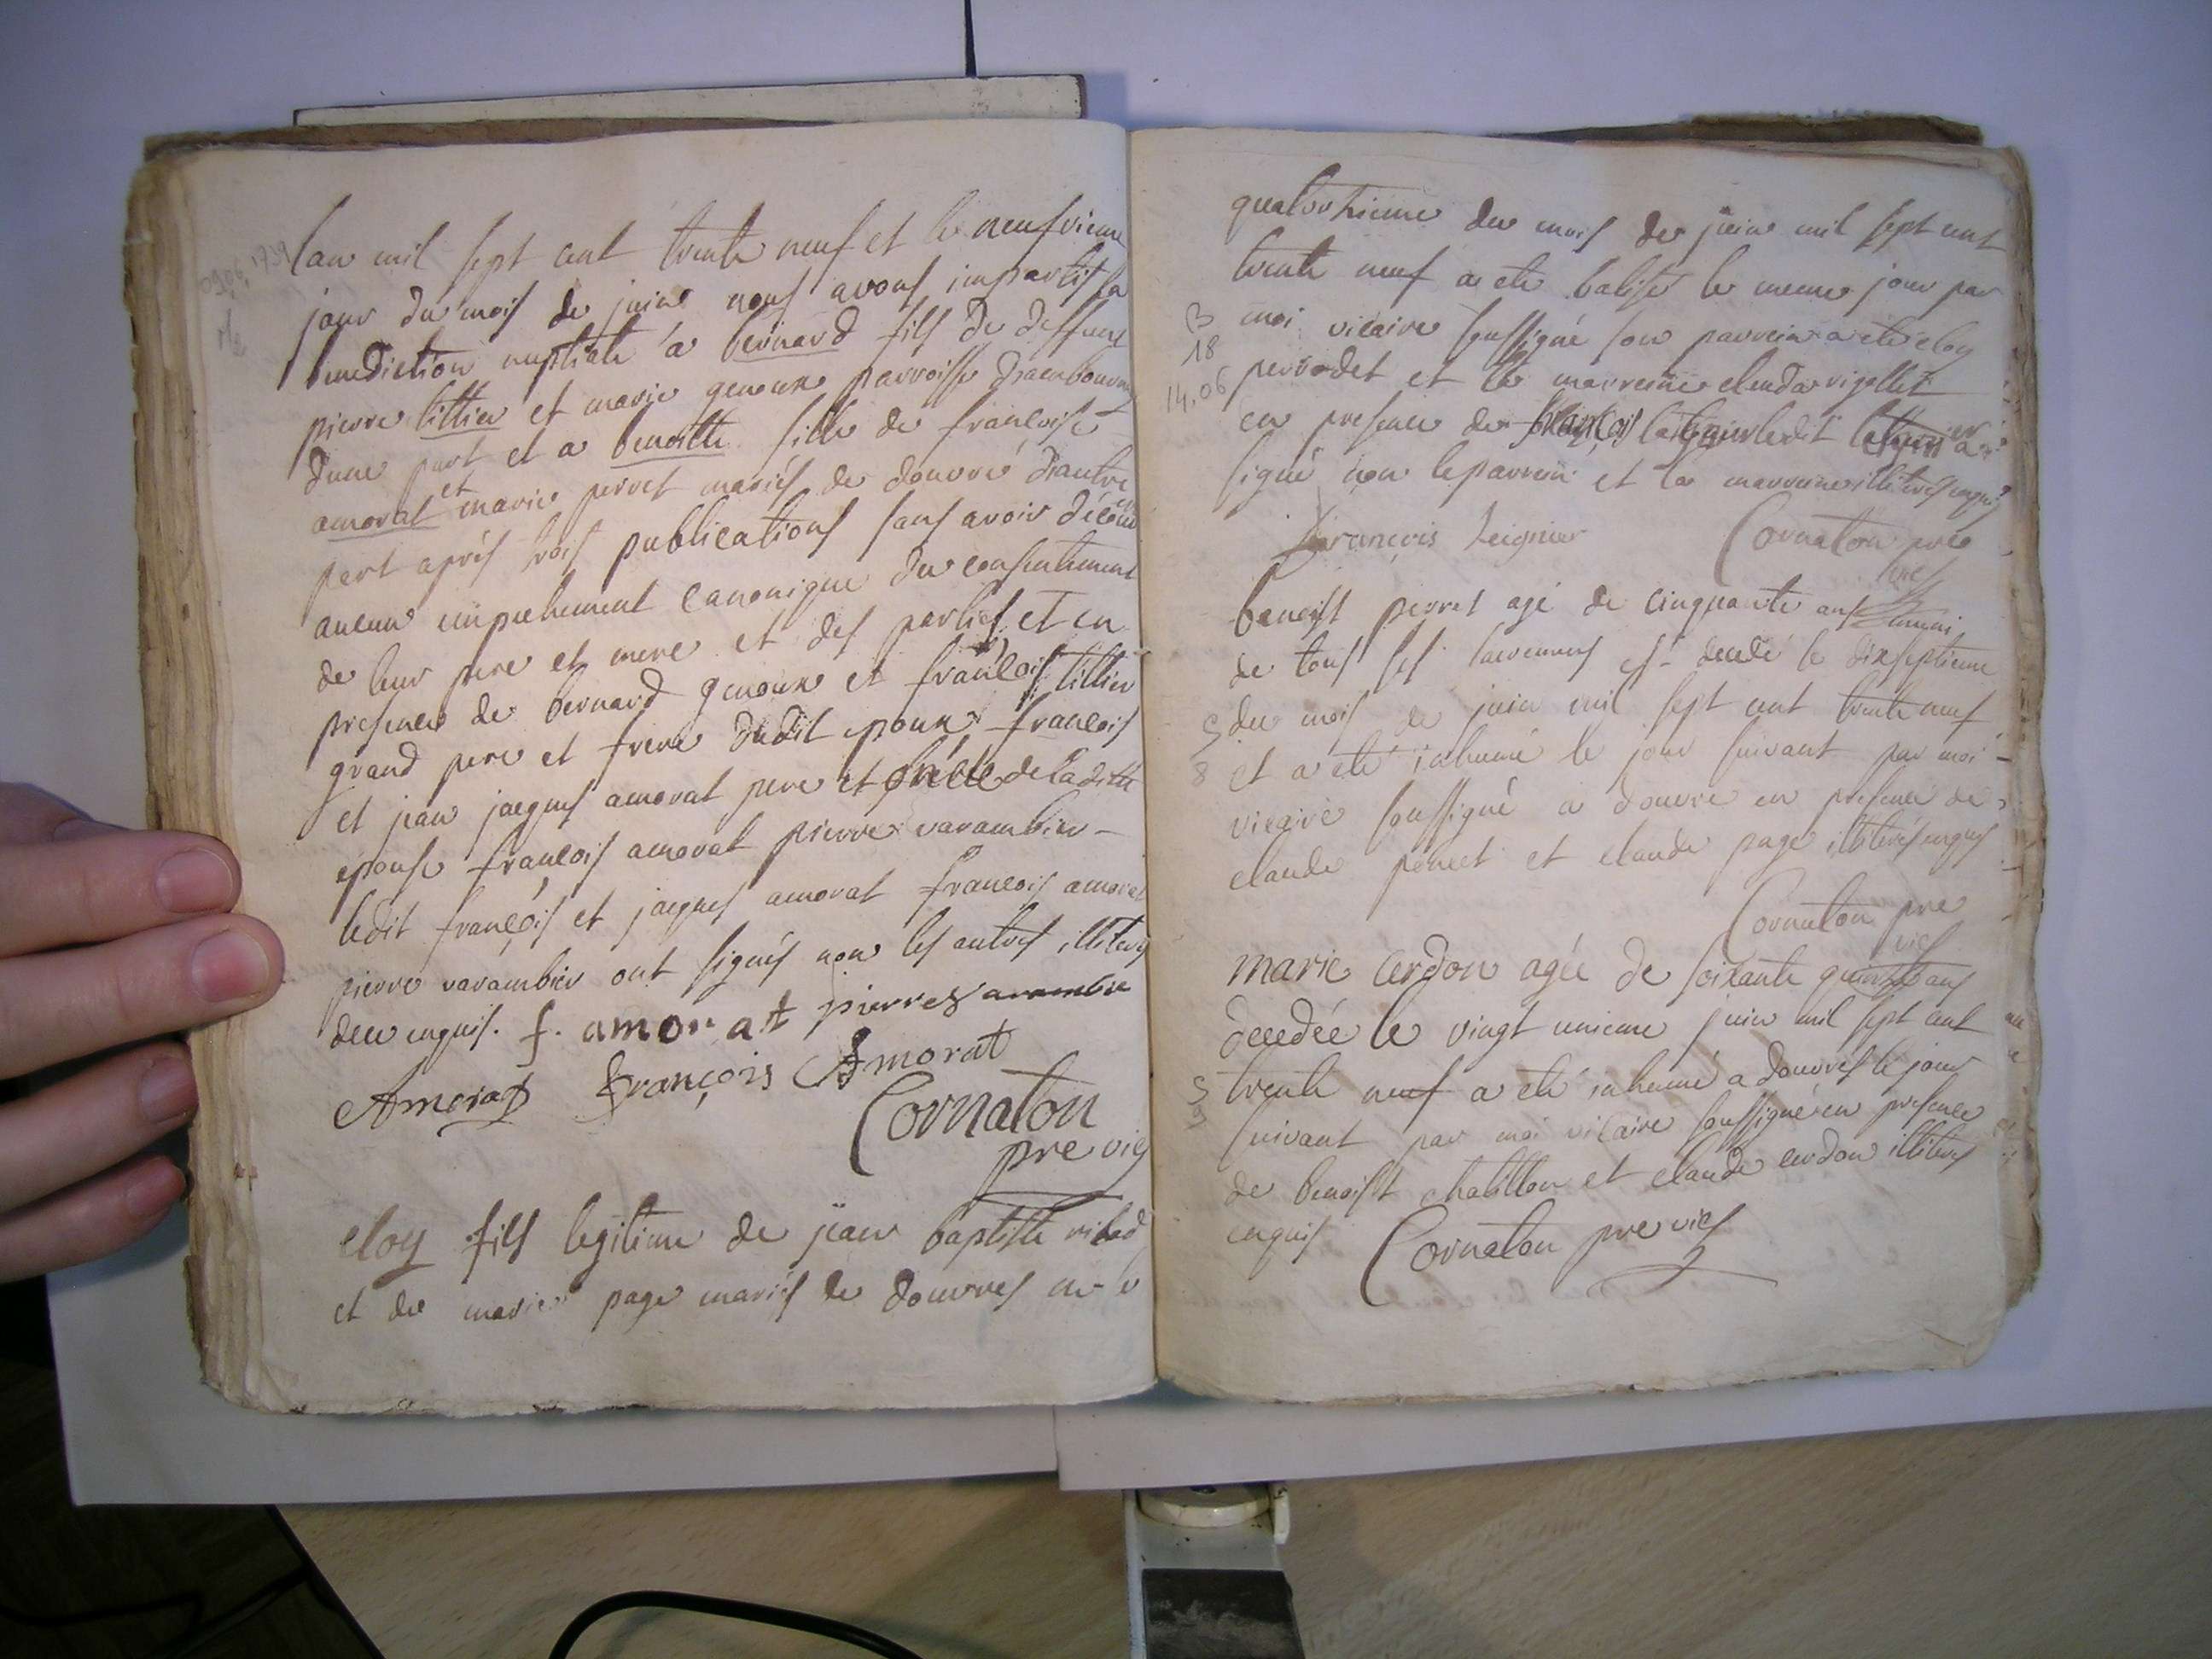 09.06.1739
lan mil sept cent trente neuf et le neufvieme
jour du mois de juin nous avons impartis la
benediction nuptiale a bernard fils de deffunt
pierre tittier et marie genoux parroisse
dune part et a benoitte fille de francoise
amorat et marie perret mariés de douvre dautre
part aprés trois publications sans avoir découv
aucun empechement canonique du consentement
de leur pere et mere et des parties et en
presence de bernard genoux et francois tittier
grand pere et frere dudit epoux francois
et jean jacques amorat pere et frere de la ditte
epouse francois amorat pierre varambier
ledit francois et jacques amorat francois amorat
pierre varambier ont signés non les autres illiterés
deu enquis. f. amorat pierre varambie
Amorat François Amorat
Cornaton
pre vics
eloy fils legitime de jean baptiste
et de marie page mariés de douvres
quatorzieme du mois de juin mil sept cent
trente neuf a ete batisé le meme jour par
B
moi vicaire soussigné son parrein a ete eloy
18
14.06
perrodet et la marreine clauda rigollet
en presence de francois ledit a
signé non le parrein et la marreine illiterés enquis
François Leignier Cornaton pre
vics
benoist perret agé de cinquante ans muni
de tous ses sacremens est decedé le dixseptieme
S
du mois de juin mil sept cent trente neuf
8
et a ete inhumé le jour suivant par moi
vicaire soussigné a douvre en presence de
claude perret et claude page illiterés enquis
Cornaton pre
vics
marie cerdon agée de soixante quinze ans
decedée le vingt unieme juin mil sept cent
S
trente neuf a ete inhumé a douvres le jour
9
suivant par moi vicaire soussigné en presence
de benoist chatillon et claude cerdon illiterés
enquis Cornaton pre vics